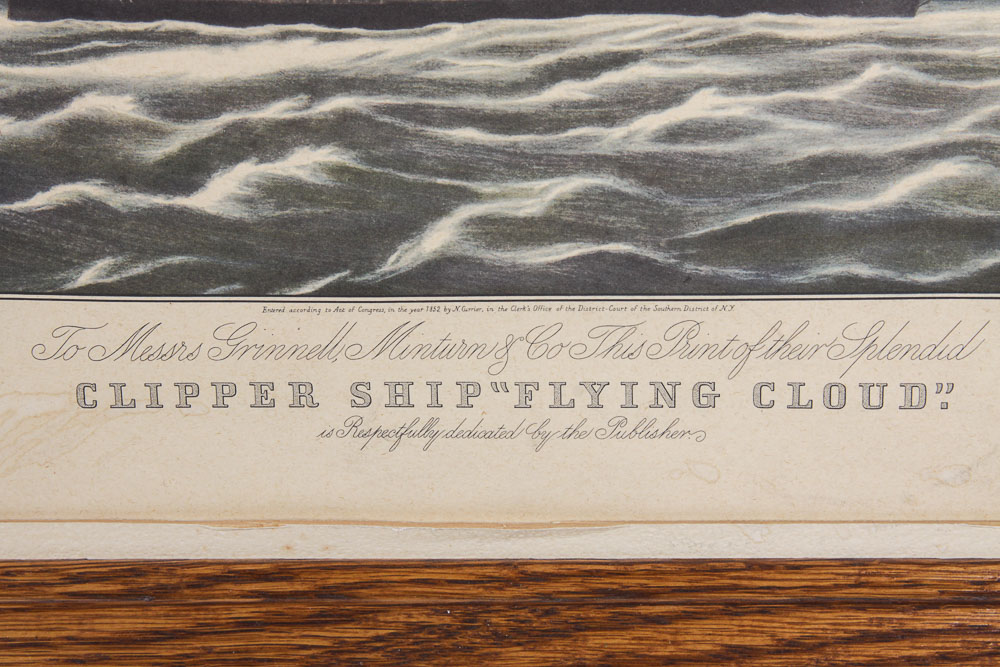 Entered according to Act of Congress, in the year 1852 by N. Currier, in the Clerk's Office of the District-Court of the Southern District of N.Y.
To Messrs Grinnell, Minturn & Co This Print of their Splendid
CLIPPER SHIP "FLYING CLOUD".
is Respectfully dedicated by the Publisher.